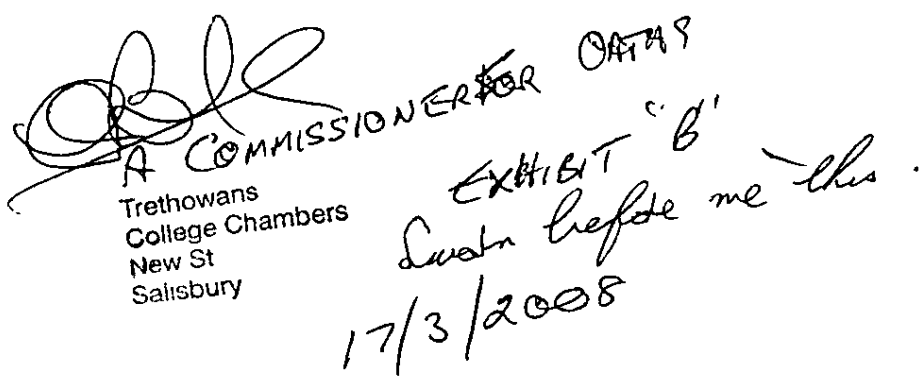 A COMMISSIONER FOR OATHS
Trethowans
College Chambers
New St
Salisbury
EXHIBIT "B"
Sworn before me this
17/3/2008